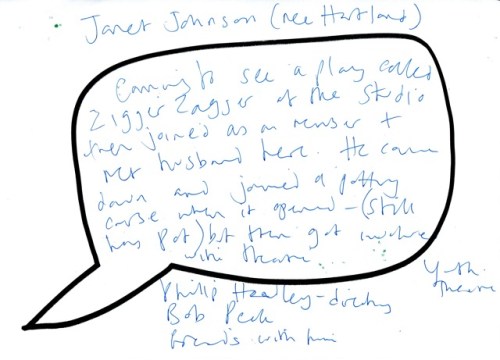 Janet Johnson (nee Hartland)
Coming to see a play called
Zigger Zagger at the Studio
then joined as a member +
met husband here. He came
down and joined a pottery
course when it opened - (still
has pot) but then got involved
with theatre...
Youth
Theatre
Philip Headley - directing
Bob Peck
friends with him